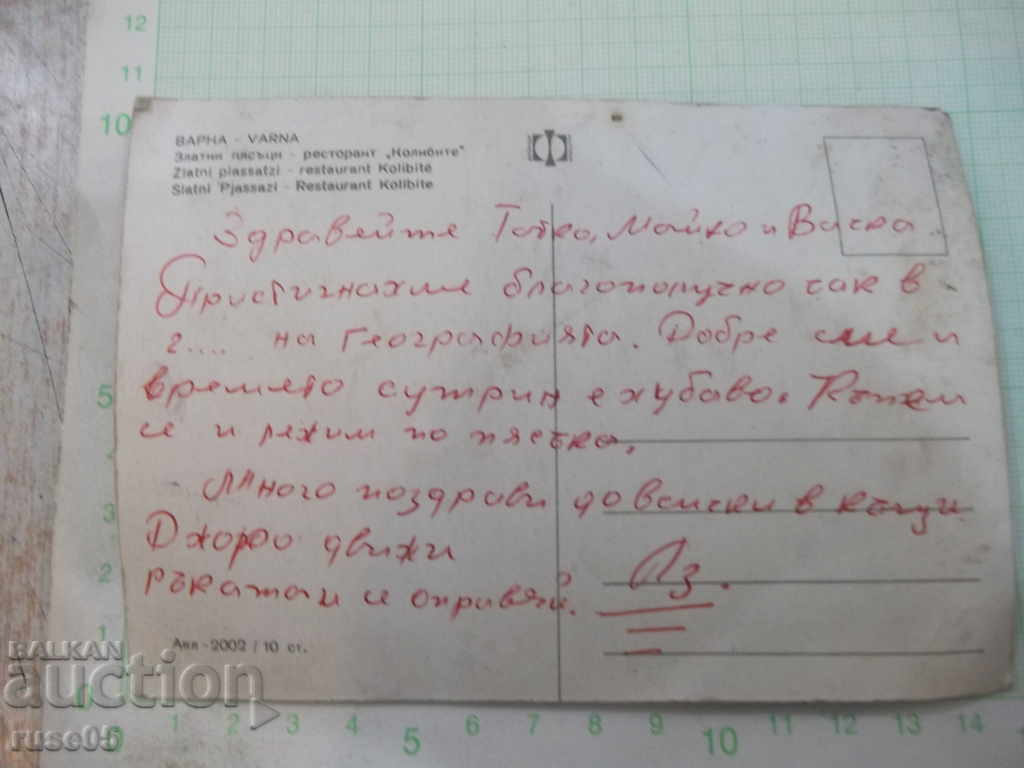 ВАРНА - VARNA
Златни пясъци - ресторант „Колибите"
Zlatni piassatzi - restaurant Kolibite
Slatni Pjassazi - Restaurant Kolibite
Здравейте Татко, Майко и Васка.
Пристигнахме благополучно чак в
г.... на географията. Добре сме и
времето сутрин е хубаво. Къпем
се и лежим по пясъка.
Много поздрави до всички в къщи
Джоро движи
ръката си и оправяй.
Аз.
Акл-2002 / 10 ст.
BALKAN
auction
ruse05
12
11
10
5
3
2
1
0
0 1 2 3 4 5 6 7 8 9 10 11 12 13 14